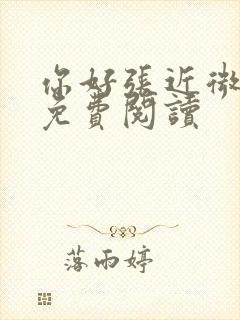 你好張近微
免費閱讀
落雨婷